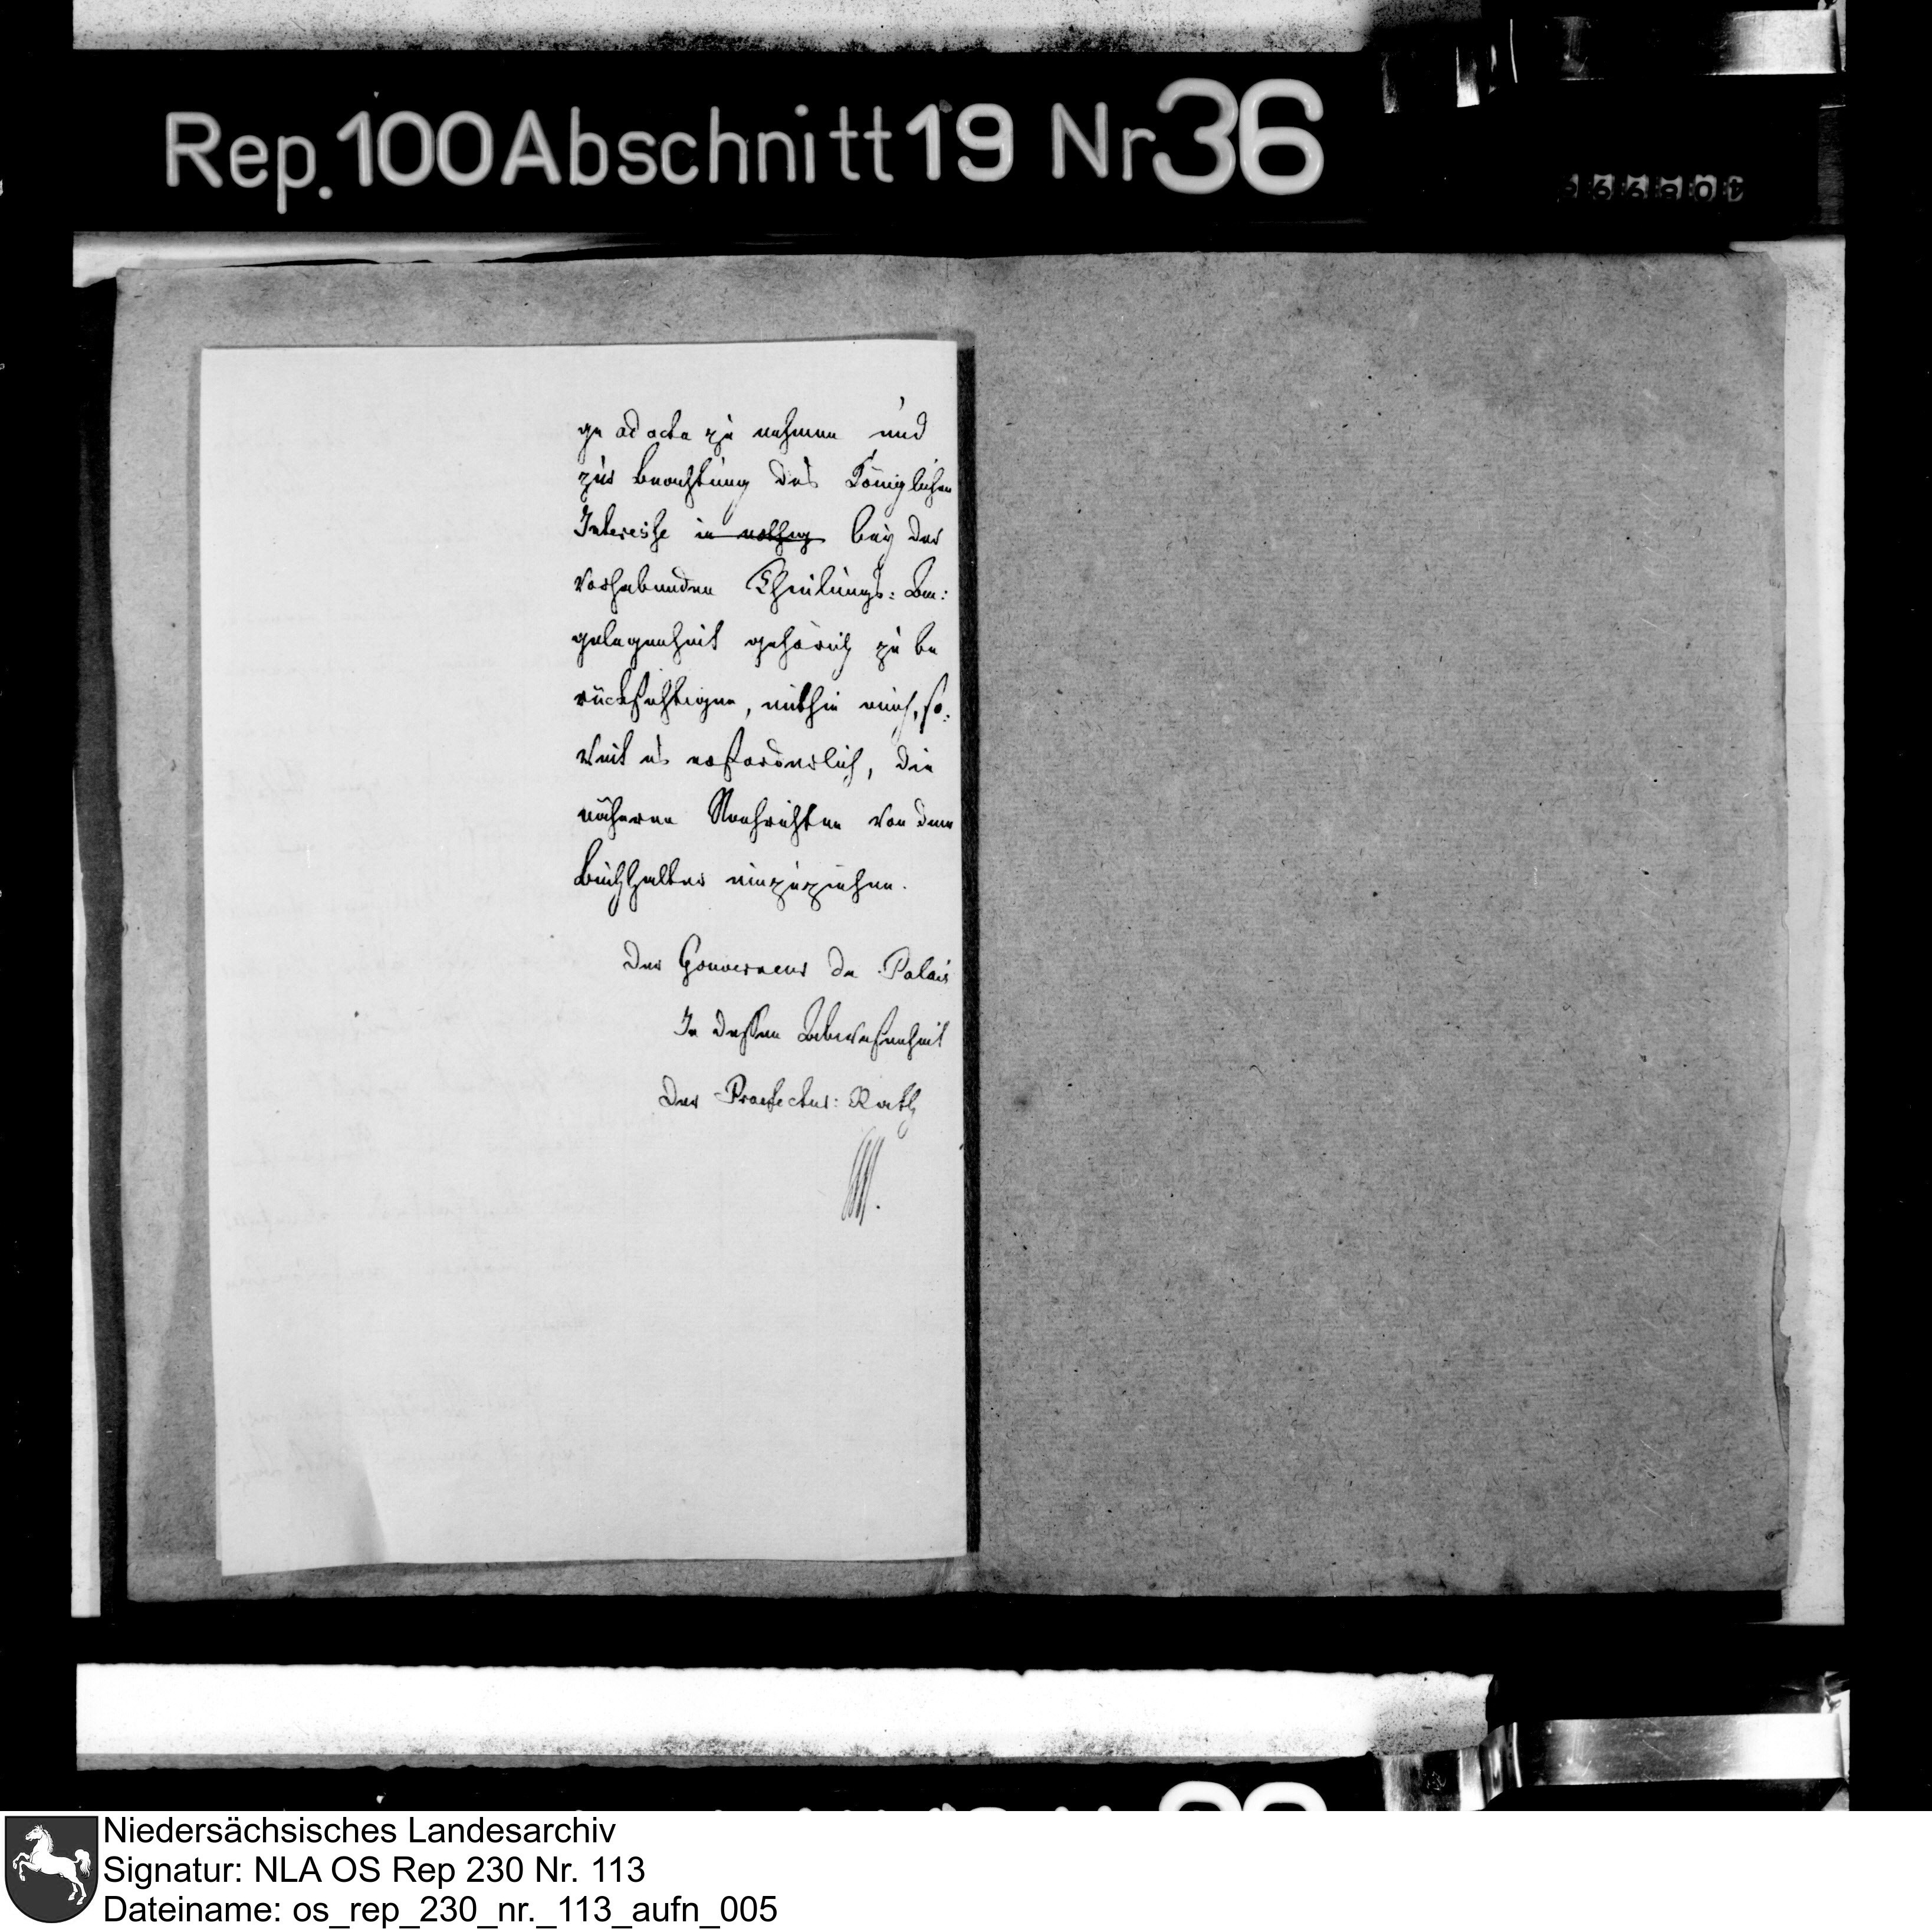 Rep. 100 Abschnitt 19 Nr 36
ge ad acta zu nehmen und
zur Beachtung des Königlichen
Interesse in bey der
vorhabenden Theilungs: An:
gelegenheit gehörig zu be
rücksichtigen, mithin auch, so:
weit es erforderlich, die
näheren Nachrichten von dem
Buchhalter einzuziehen.
Der Gouverneur du Palais
In dessen Abwesenheit
Der Praefectur: Rath
Niedersächsisches Landesarchiv
Signatur: NLA OS Rep 230 Nr. 113
Dateiname: os_rep_230_nr._113_aufn_005